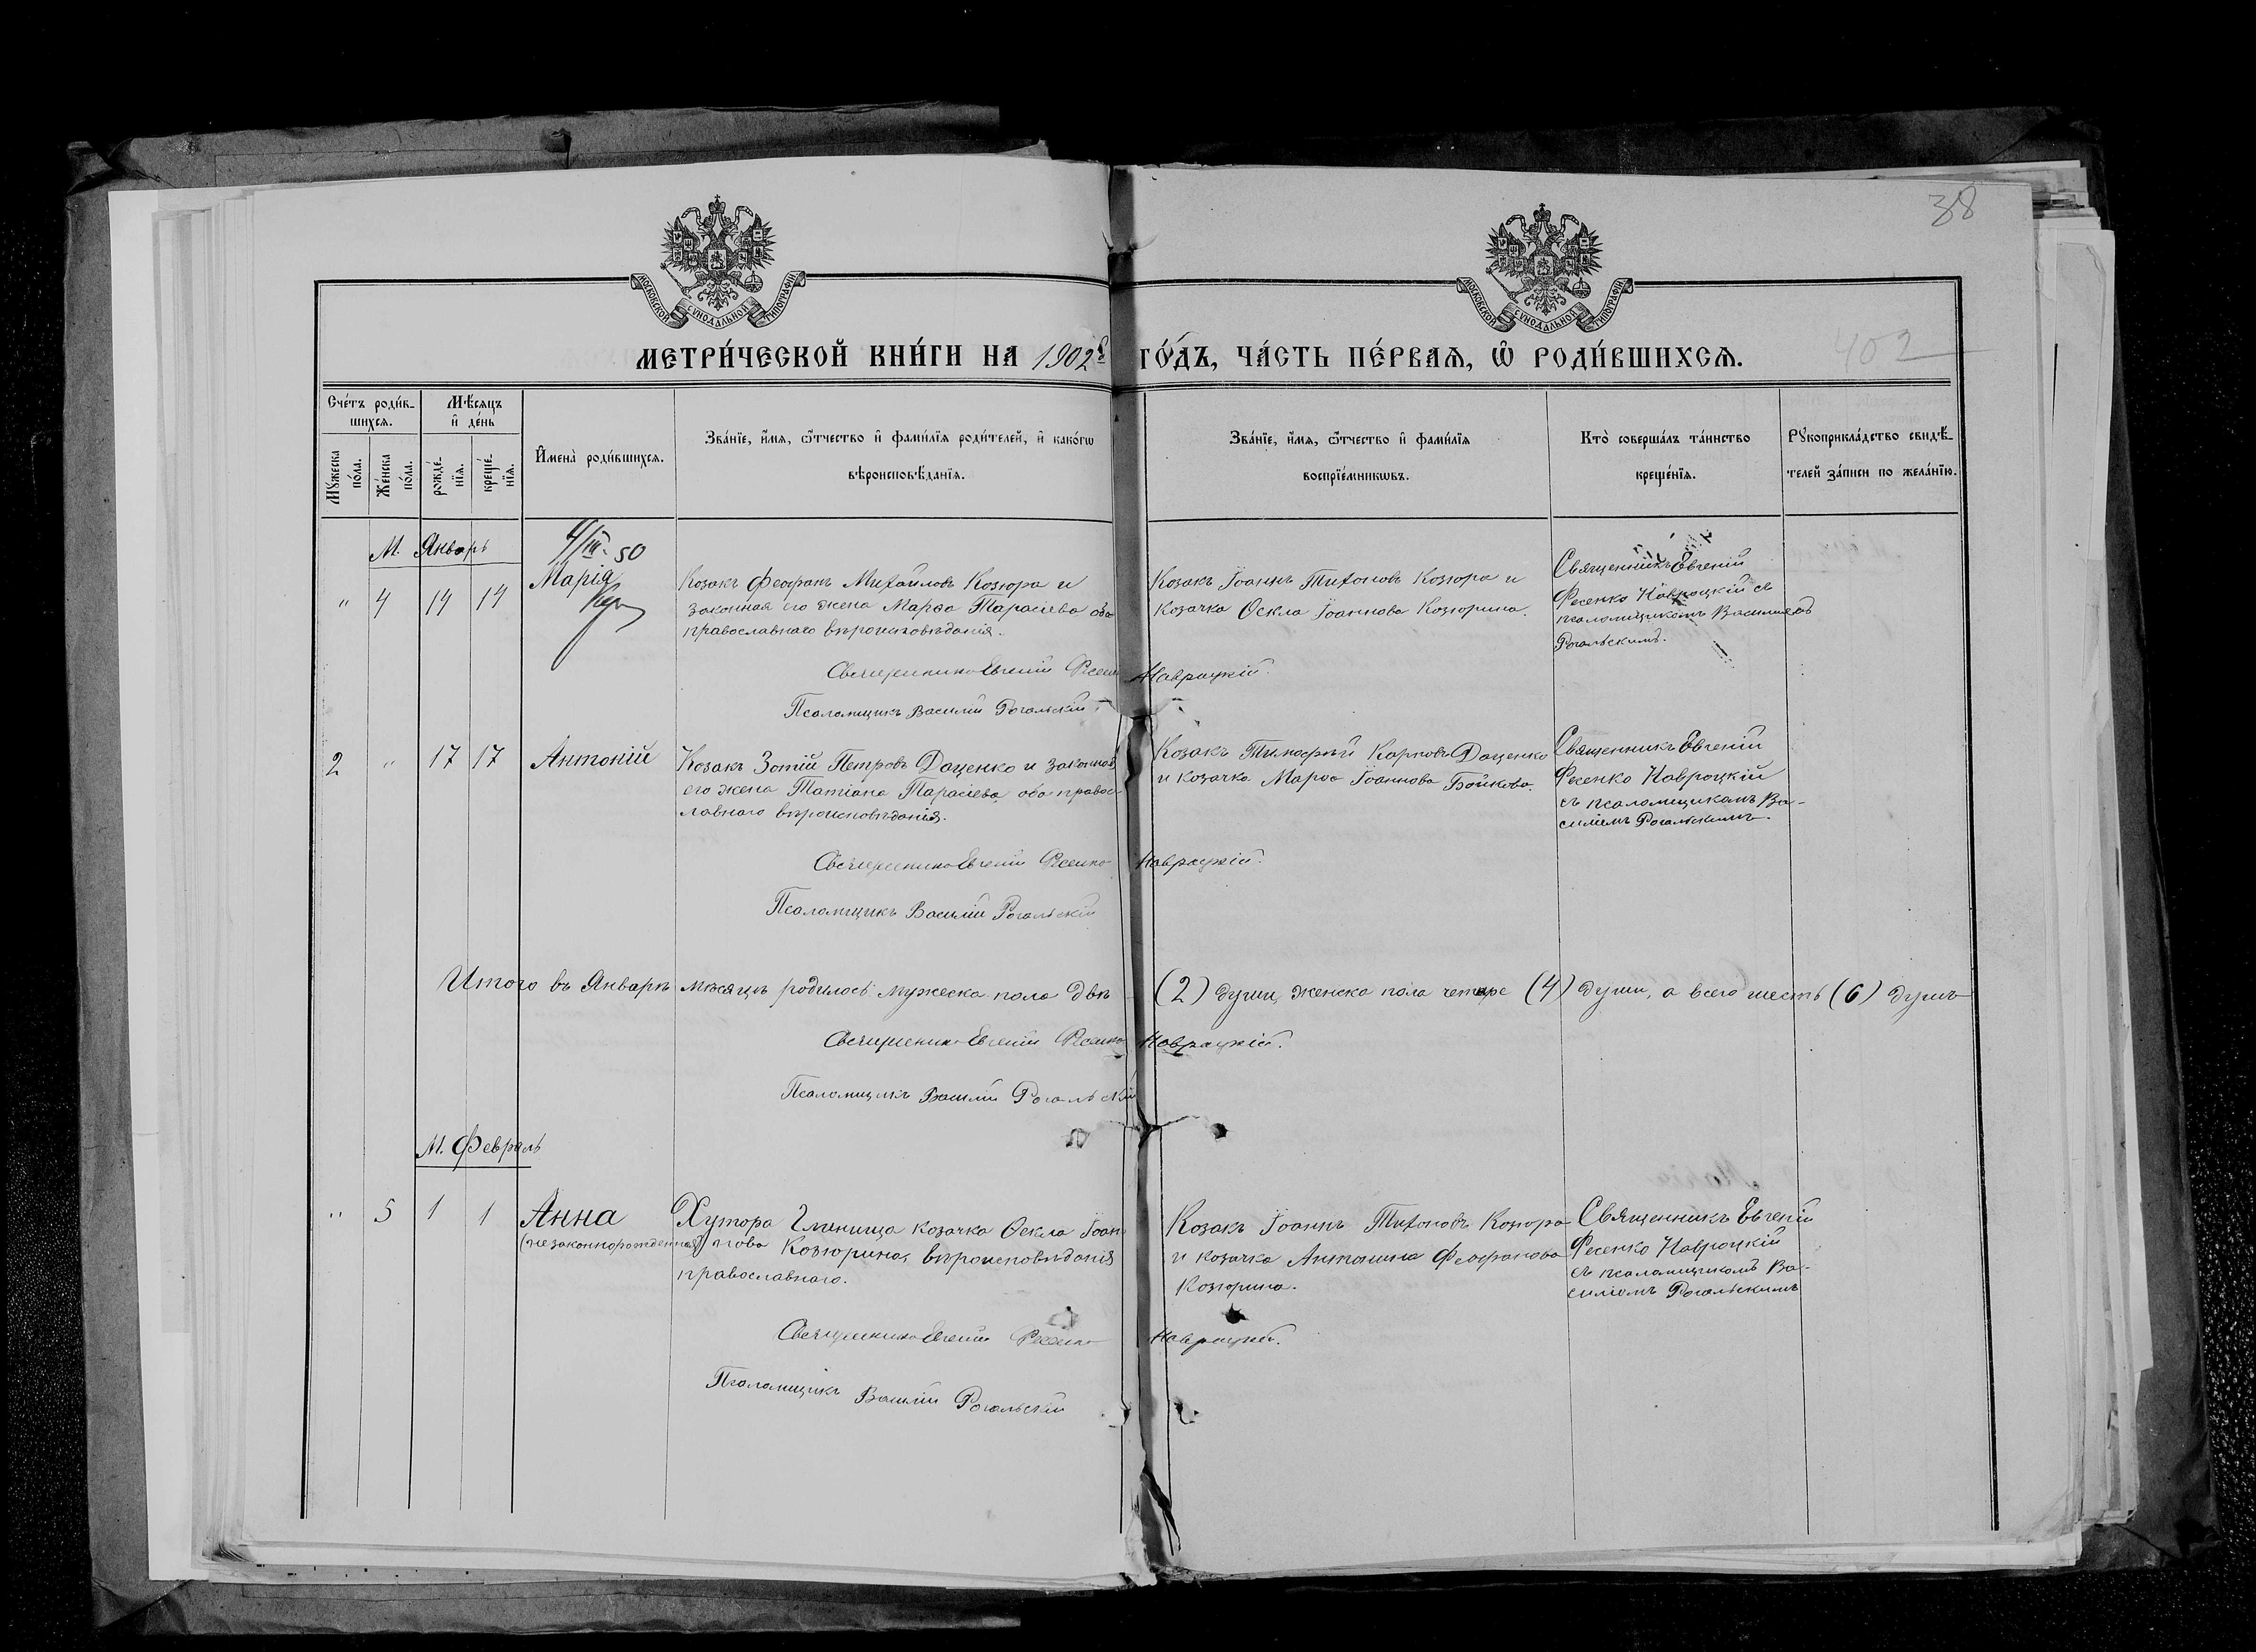 38
МОСКОВСКОЙ СѴНОДАЛЬНОЙ ТИПОГРАФІИ
МОСКОВСКОЙ СѴНОДАЛЬНОЙ ТИПОГРАФІИ
МЕТРИ́ЧЕСКОЙ КНИ́ГИ НА 1902й ГО́ДЪ, ЧА́СТЬ ПЕ́РВАѦ, Ѡ҆ РОДИ́ВШИХСѦ.
402
Сче́тъ роди́в-
шихсѧ.
Мѣ́сѧцъ
и҆ де́нь
Мꙋ́жеска
по́ла.
Же́нска
по́ла.
рожде́-
нїѧ.
креще́-
нїѧ.
И҆мена̀ роди́вшихсѧ.
Зва́нїе, и҆́мѧ, ѻ҆́тчество и҆ фами́лїѧ роди́телей, и҆ како́гѡ
вѣроисповѣ́данїѧ.
Зва́нїе, и҆́мѧ, ѻ҆́тчество и҆ фами́лїѧ
воспрїе́мникѡвъ.
Кто̀ соверша́лъ та́инство
креще́нїѧ.
Рꙋкоприкла́дство свидѣ́-
телей за́писи по жела́нїю.
М. Январь
4/III-50
" 4 14 14 Марія
Козакъ Феофанъ Михайловъ Козюра и
законная его жена Марѳа Тарасіева, оба
православнаго вѣроисповѣданія.
Козакъ Іоаннъ Тихоновъ Козюра и
козачка Ѳекла Іоаннова Козюрина.
Священникъ Евгеній
Фесенко Навроцкій съ
псаломщикомъ Василіемъ
Рогальскимъ.
Священникъ Евгеній Фесенко Навроцкій.
Псаломщикъ Василій Рогальскій
2 " 17 17 Антоній
Козакъ Зотій Петровъ Даценко и законная
его жена Татіана Тарасіева, оба правос-
лавнаго вѣроисповѣданія.
Козакъ Тимофѣй Карповъ Даценко
и козачка Марѳа Іоаннова Бойкова.
Священникъ Евгеній
Фесенко Навроцкій
съ псаломщикомъ Ва-
силіемъ Рогальскимъ.
Священникъ Евгеній Фесенко Навроцкій.
Псаломщикъ Василій Рогальскій
Итого въ Январѣ мѣсяцѣ родилось мужеска пола двѣ (2) души, женска пола четыре (4) души, а всего шесть (6) душъ
Священникъ Евгеній Фесенко Навроцкій.
Псаломщикъ Василій Рогальскій
М. Февраль
" 5 1 1 Анна
(незаконнорожденная)
Хутора Глиница козачка Ѳекла Іоан-
нова Козюрина, вѣроисповѣданія
православнаго.
Козакъ Іоаннъ Тихоновъ Козюра
и козачка Антонина Феофанова
Козюрина.
Священникъ Евгеній
Фесенко Навроцкій
съ псаломщикомъ Ва-
силіемъ Рогальскимъ
Священникъ Евгеній Фесенко Навроцкій.
Псаломщикъ Василій Рогальскій